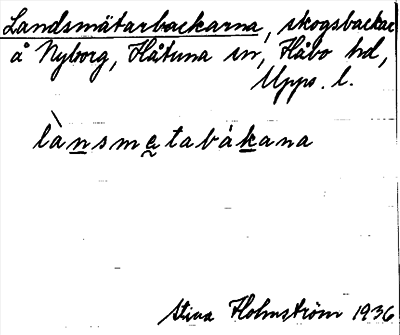 Landsmätarbackarna, skogsbackar
å Nyborg, Håtuna sn, Håbo hd,
Upps. l.
lànsmetabákana
Stina Holmström 1936